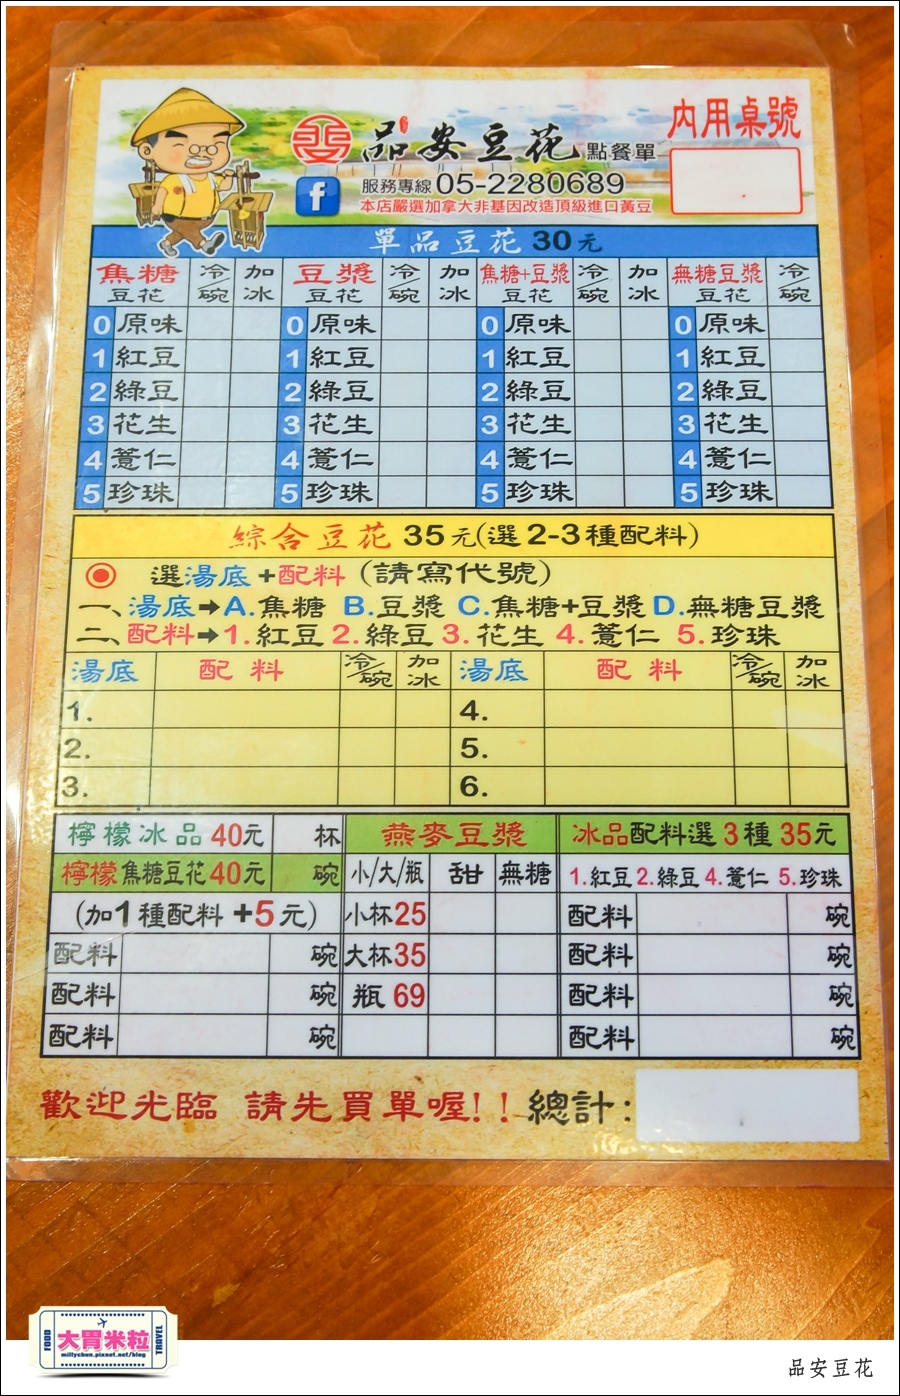 品安豆花 點餐單
內用桌號
服務專線 05-2280689
本店嚴選加拿大非基因改造頂級進口黃豆
單品豆花 30元
焦糖豆花 冷/碗 加冰 豆漿豆花 冷/碗 加冰 焦糖+豆漿豆花 冷/碗 加冰 無糖豆漿豆花 冷/碗
0 原味 0 原味 0 原味 0 原味
1 紅豆 1 紅豆 1 紅豆 1 紅豆
2 綠豆 2 綠豆 2 綠豆 2 綠豆
3 花生 3 花生 3 花生 3 花生
4 薏仁 4 薏仁 4 薏仁 4 薏仁
5 珍珠 5 珍珠 5 珍珠 5 珍珠
綜合豆花 35元(選2-3種配料)
選湯底+配料 (請寫代號)
一、湯底➡A.焦糖 B.豆漿 C.焦糖+豆漿 D.無糖豆漿
二、配料➡1.紅豆 2.綠豆 3.花生 4.薏仁 5.珍珠
湯底 配料 冷/碗 加冰 湯底 配料 冷/碗 加冰
1. 4.
2. 5.
3. 6.
檸檬冰品40元 杯 燕麥豆漿 冰品配料選3種35元
檸檬焦糖豆花40元 碗 小/大/瓶 甜 無糖 1.紅豆 2.綠豆 4.薏仁 5.珍珠
(加1種配料+5元) 小杯25 配料 碗
配料 碗 大杯35 配料 碗
配料 碗 瓶 69 配料 碗
配料 碗 配料 碗
歡迎光臨 請先買單喔!! 總計:
FOOD 大胃米粒 TRAVEL
millychun.pixnet.net/blog
品安豆花